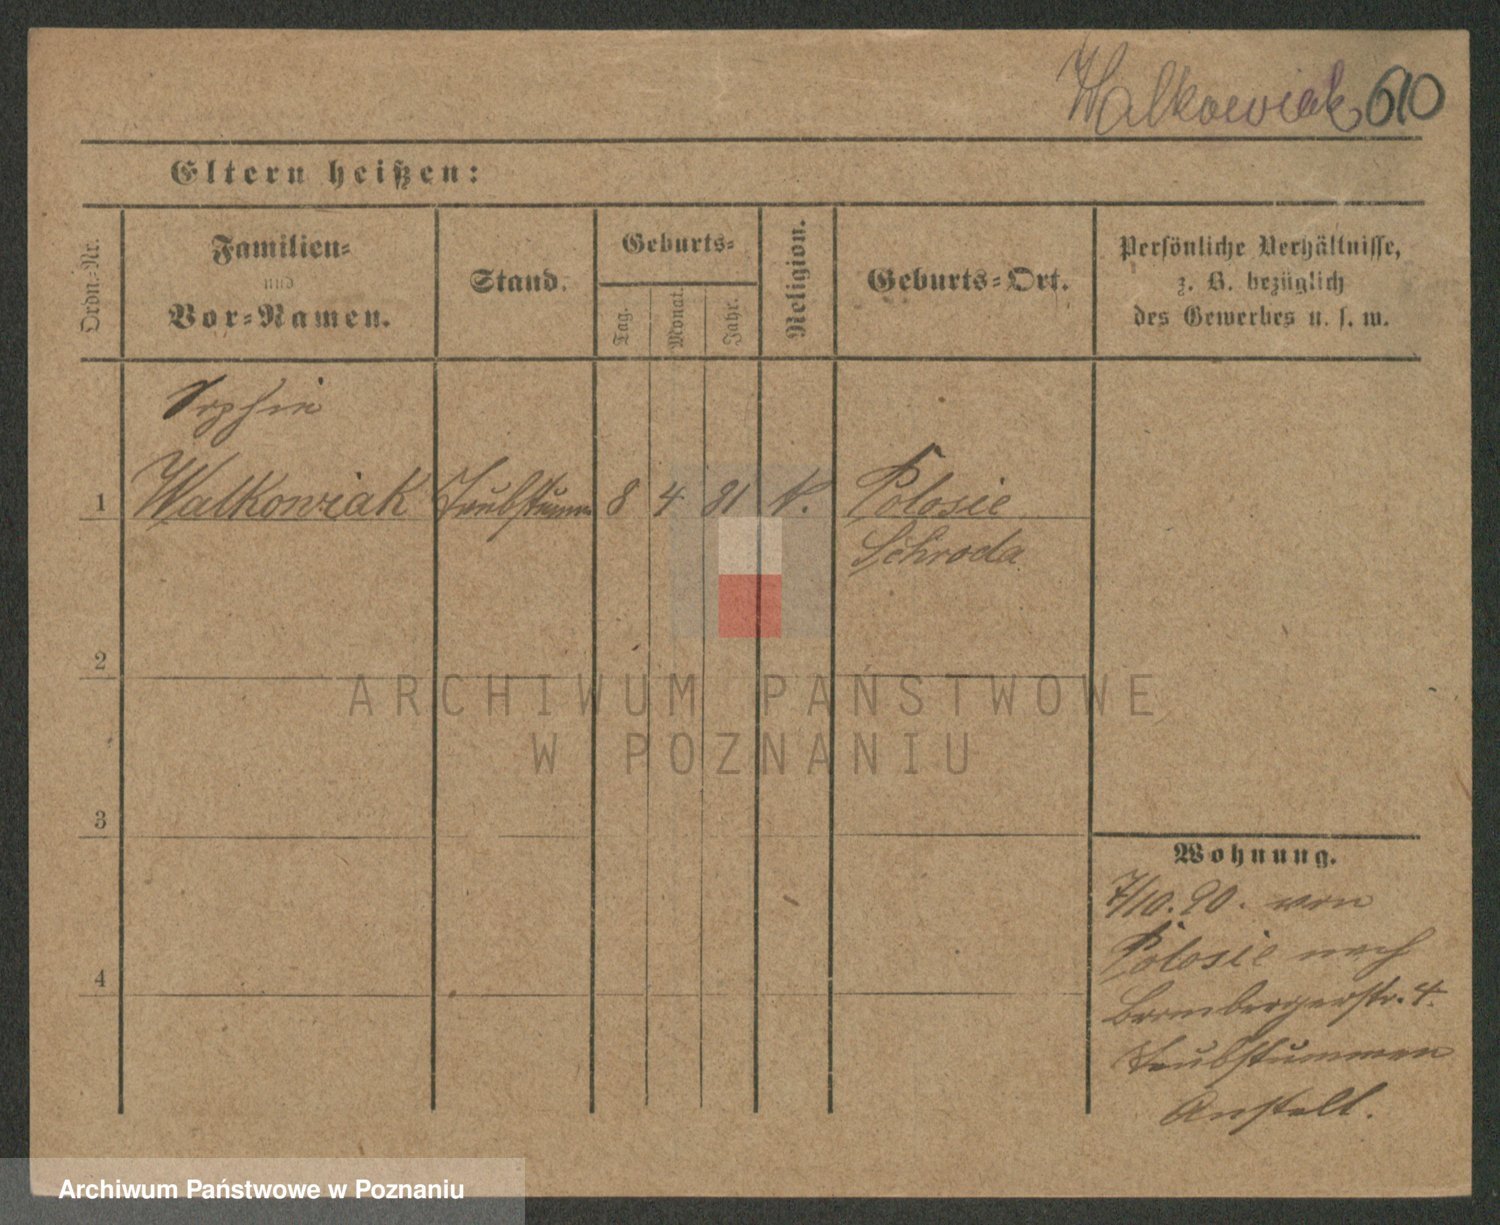 Walkowiak 610
Eltern heißen:
Ordn.-Nr.
Familien-
und
Vor-Namen.
Stand.
Geburts-
Tag.
Monat.
Jahr.
Religion.
Geburts-Ort.
Persönliche Verhältnisse,
z. B. bezüglich
des Gewerbes u. s. w.
Sophie
1 Walkowiak Taubstumm 8 4 81 k. Polosie
Schroda
2
ARCHIWUM PAŃSTWOWE
W POZNANIU
3
Wohnung.
7/10. 90. von
Polosie nach
4
Brombergerstr. 4.
Taubstummen
Anstalt.
Archiwum Państwowe w Poznaniu